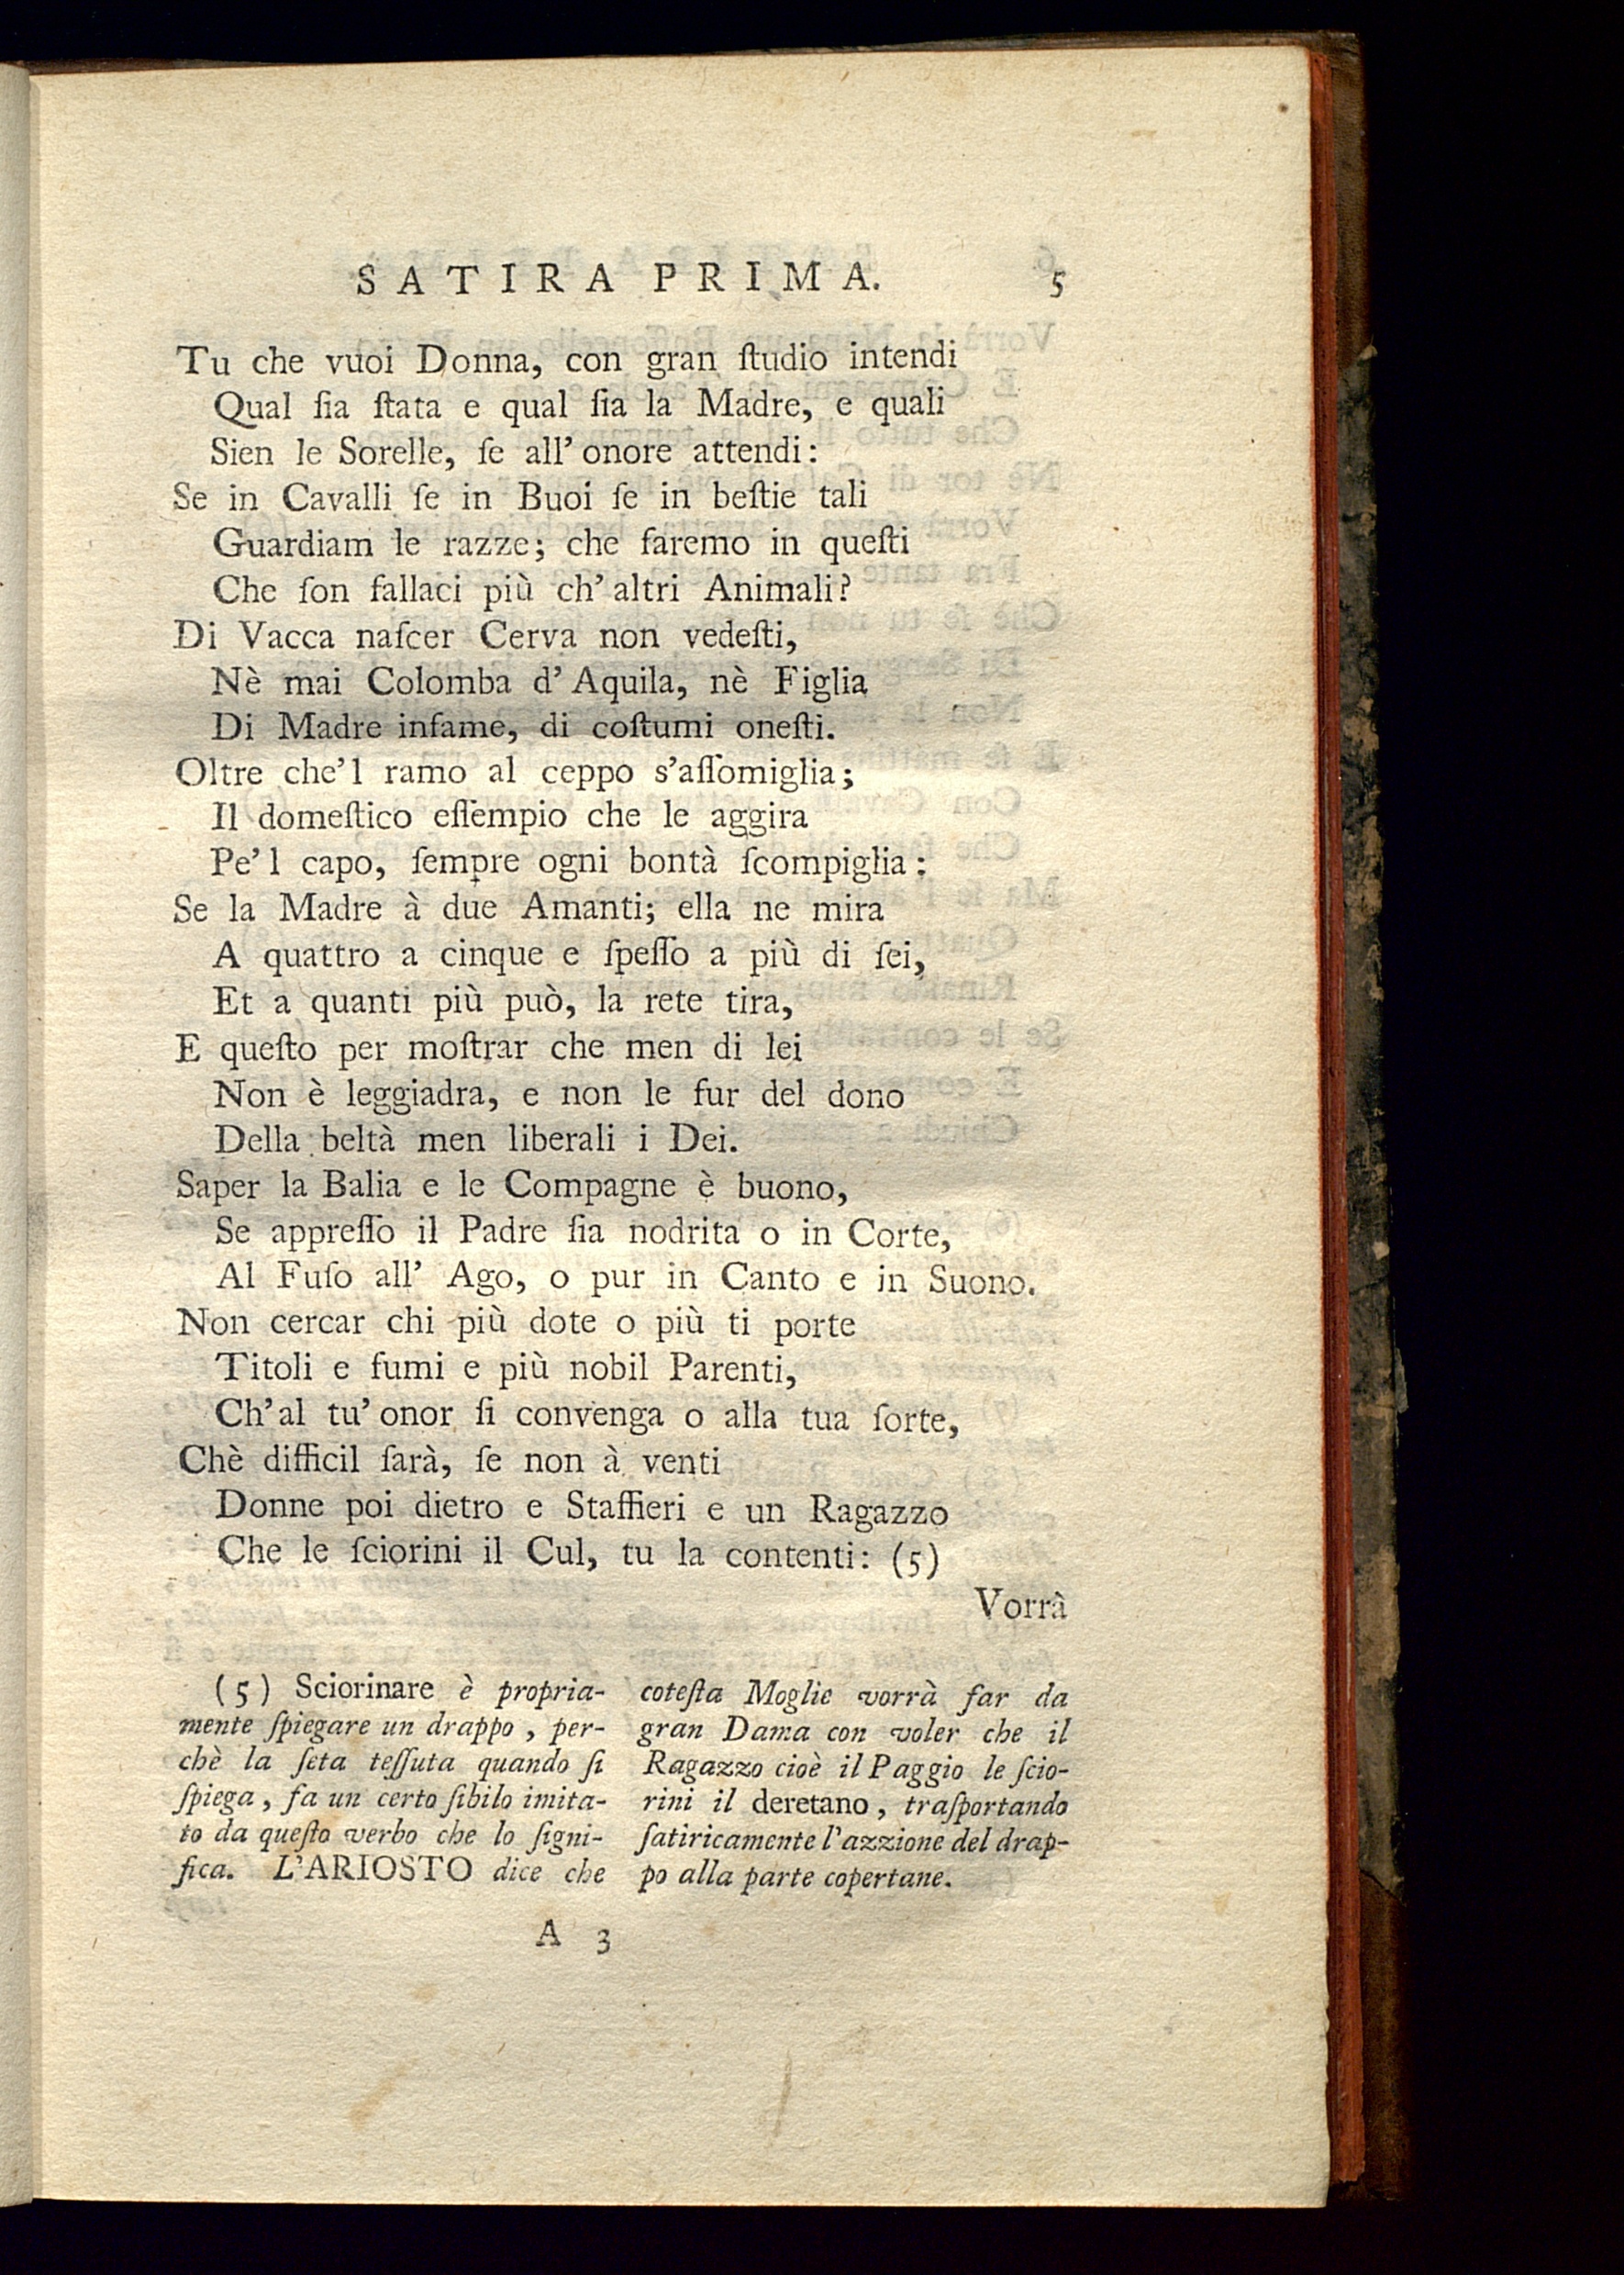 SATIRA PRIMA. 5
Tu che vuoi Donna, con gran ſtudio intendi
Qual ſia ſtata e qual ſia la Madre, e quali
Sien le Sorelle, ſe all' onore attendi:
Se in Cavalli ſe in Buoi ſe in beſtie tali
Guardiam le razze; che faremo in queſti
Che ſon fallaci più ch' altri Animali?
Di Vacca naſcer Cerva non vedeſti,
Nè mai Colomba d' Aquila, nè Figlia
Di Madre infame, di coſtumi oneſti.
Oltre che'l ramo al ceppo s'aſſomiglia;
Il domeſtico eſſempio che le aggira
Pe'l capo, ſempre ogni bontà ſcompiglia:
Se la Madre à due Amanti; ella ne mira
A quattro a cinque e ſpeſſo a più di ſei,
Et a quanti più può, la rete tira,
E queſto per moſtrar che men di lei
Non è leggiadra, e non le fur del dono
Della beltà men liberali i Dei.
Saper la Balia e le Compagne è buono,
Se appreſſo il Padre ſia nodrita o in Corte,
Al Fuſo all' Ago, o pur in Canto e in Suono.
Non cercar chi più dote o più ti porte
Titoli e fumi e più nobil Parenti,
Ch'al tu' onor ſi convenga o alla tua ſorte,
Chè difficil ſarà, ſe non à venti
Donne poi dietro e Staffieri e un Ragazzo
Che le ſciorini il Cul, tu la contenti: (5)
Vorrà
(5) Sciorinare è propria-
mente ſpiegare un drappo, per-
chè la ſeta teſſuta quando ſi
ſpiega, fa un certo ſibilo imita-
to da queſto verbo che lo ſigni-
fica. L'ARIOSTO dice che
coteſta Moglie vorrà far da
gran Dama con voler che il
Ragazzo cioè il Paggio le ſcio-
rini il deretano, traſportando
ſatiricamente l'azzione del drap-
po alla parte copertane.
A 3